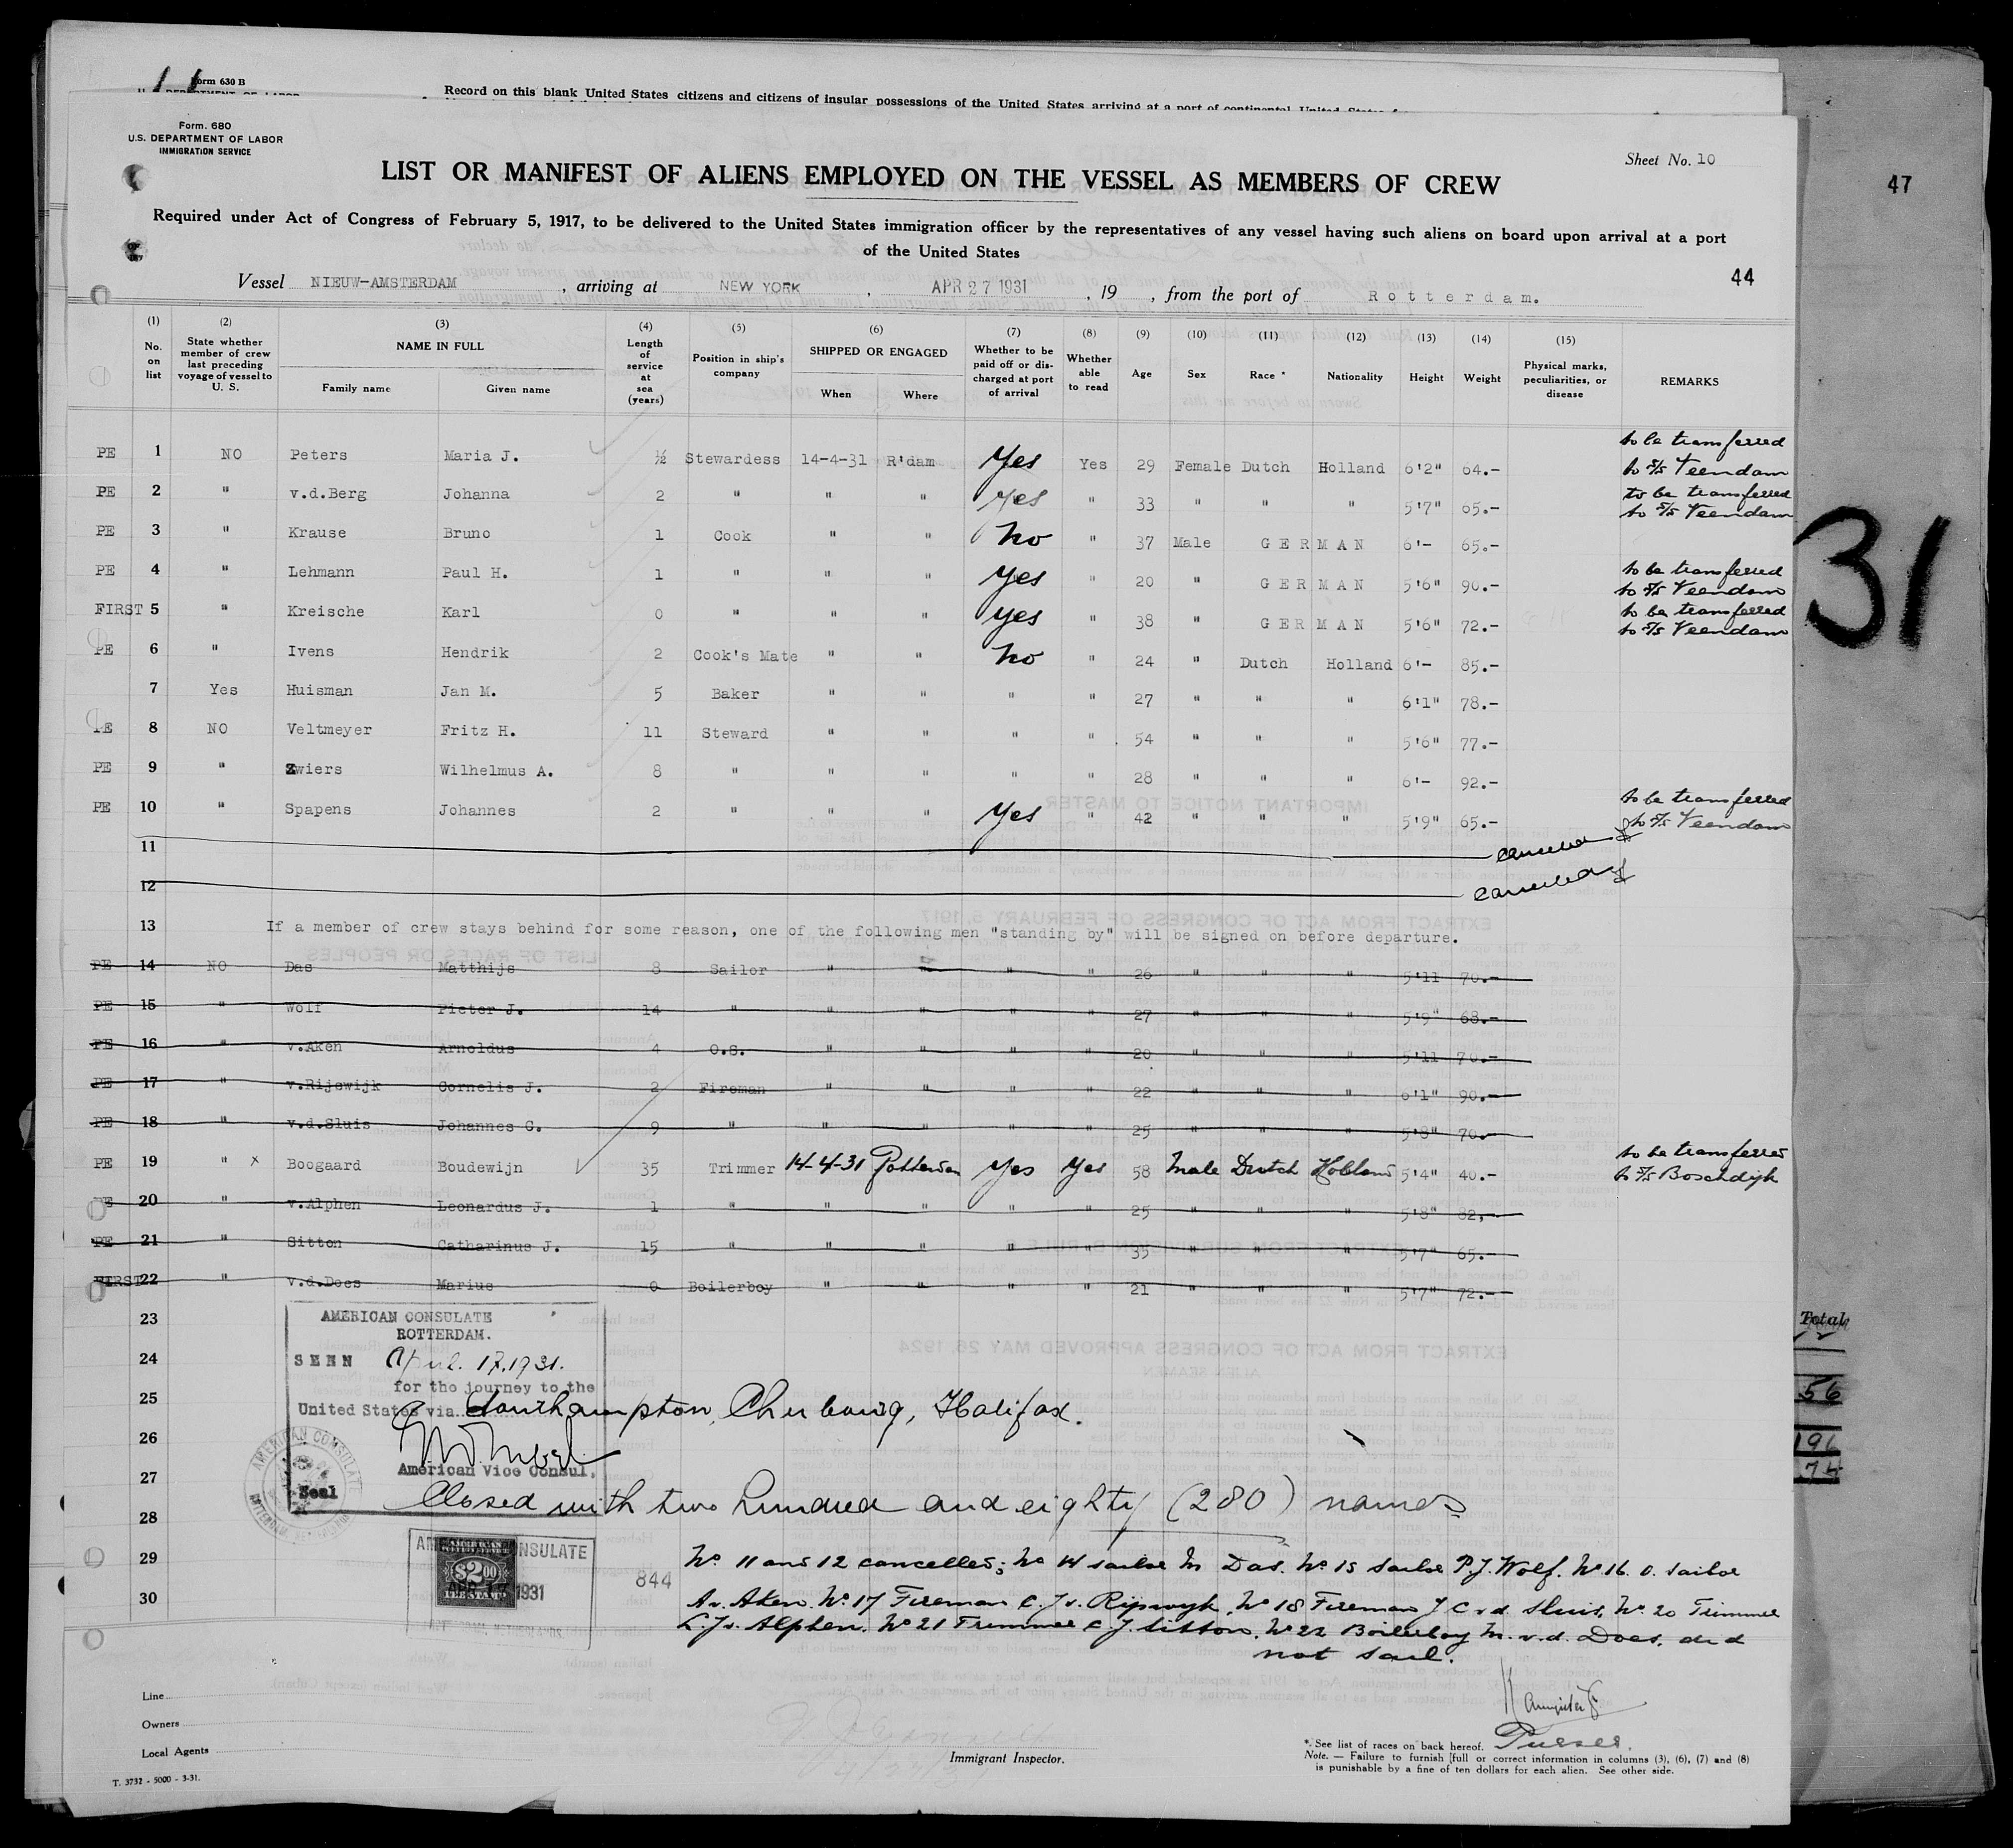 Form 630 B
Record on this blank United States citizens and citizens of insular possessions of the United States arriving at a port of continental United States
Form. 680
U.S. DEPARTMENT OF LABOR
IMMIGRATION SERVICE
Sheet No. 10
LIST OR MANIFEST OF ALIENS EMPLOYED ON THE VESSEL AS MEMBERS OF CREW
47
Required under Act of Congress of February 5, 1917, to be delivered to the United States immigration officer by the representatives of any vessel having such aliens on board upon arrival at a port
of the United States
44
Vessel NIEUW-AMSTERDAM, arriving at NEW YORK, APR 27 1931, 19 , from the port of Rotterdam.
(1) No. on list (2) State whether member of crew last preceding voyage of vessel to U. S. (3) NAME IN FULL Family name Given name (4) Length of service at sea (years) (5) Position in ship's company (6) SHIPPED OR ENGAGED When Where (7) Whether to be paid off or discharged at port of arrival (8) Whether able to read (9) Age (10) Sex (11) Race * (12) Nationality (13) Height (14) Weight (15) Physical marks, peculiarities, or disease REMARKS
PE 1 NO Peters Maria J. ½ Stewardess 14-4-31 R'dam Yes Yes 29 Female Dutch Holland 6'2" 64.- to be transferred to S/S Veendam
PE 2 " v.d.Berg Johanna 2 " " " Yes " 33 " " " 5'7" 65.- to be transferred to S/S Veendam
PE 3 " Krause Bruno 1 Cook " " No " 37 Male GERMAN 6'- 65.-
PE 4 " Lehmann Paul H. 1 " " " Yes " 20 " GERMAN 5'6" 90.- to be transferred to S/S Veendam
FIRST 5 " Kreische Karl 0 " " " Yes " 38 " GERMAN 5'6" 72.- to be transferred to S/S Veendam
PE 6 " Ivens Hendrik 2 Cook's Mate " " No " 24 " Dutch Holland 6'- 85.-
7 Yes Huisman Jan M. 5 Baker " " " " 27 " " " 6'1" 78.-
PE 8 NO Veltmeyer Fritz H. 11 Steward " " " " 54 " " " 5'6" 77.-
PE 9 " Zwiers Wilhelmus A. 8 " " " " " 28 " " " 6'- 92.-
PE 10 " Spapens Johannes 2 " " " Yes " 42 " " " 5'9" 65.- to be transferred to S/S Veendam
11 cancelled
12 cancelled
13 If a member of crew stays behind for some reason, one of the following men "standing by" will be signed on before departure.
PE 14 NO Das Matthijs 8 Sailor " " " " 26 " " " 5'11 70.-
PE 15 " Wolf Pieter J. 14 " " " " " 27 " " " 5'9" 68.-
PE 16 " v.Aken Arnoldus 4 O.S. " " " " 20 " " " 5'11 70.-
PE 17 " v.Rijswijk Cornelis J. 2 Fireman " " " " 22 " " " 6'1" 90.-
PE 18 " v.d.Sluis Johannes C. 9 " " " " " 25 " " " 5'8" 70.-
PE 19 " x Boogaard Boudewijn 35 Trimmer 14-4-31 Rotterdam Yes Yes 58 Male Dutch Holland 5'4" 40.- to be transferred to S/S Boschdijk
PE 20 " v.Alphen Leonardus J. 1 " " " " " 25 " " " 5'8" 82.-
PE 21 " Sitton Catharinus J. 15 " " " " " 35 " " " 5'7" 65.-
FIRST 22 " v.d.Does Marius 0 Boilerboy " " " " 21 " " " 5'7" 72.-
31
Total
56
196
74
23
24
25
26
27
28
29
30
AMERICAN CONSULATE
ROTTERDAM.
SEEN April 17, 1931.
for the journey to the
United States via Southampton, Cherbourg, Halifax.
American Vice Consul.
Seal
AMERICAN CONSULATE
Closed with two hundred and eighty (280) names
AMERICAN CONSULATE
$2.00
APR 17 1931
844
No 11 and 12 cancelled; No 14 sailor M Das. No 15 sailor P.J. Wolf. No 16. O. Sailor
A v. Aken. No 17 Fireman C. J v. Rijswyk, No 18 Fireman J C v d Sluis, No 20 Trimmer
L. J v. Alphen. No 21 Trimmer C J Sitton. No 22 Boilerboy M. v.d. Does. did
not sail.
Purser.
Line
Owners
Local Agents
Immigrant Inspector.
* See list of races on back hereof.
Note. — Failure to furnish full or correct information in columns (3), (6), (7) and (8)
is punishable by a fine of ten dollars for each alien. See other side.
T. 3732 - 5000 - 3-31.